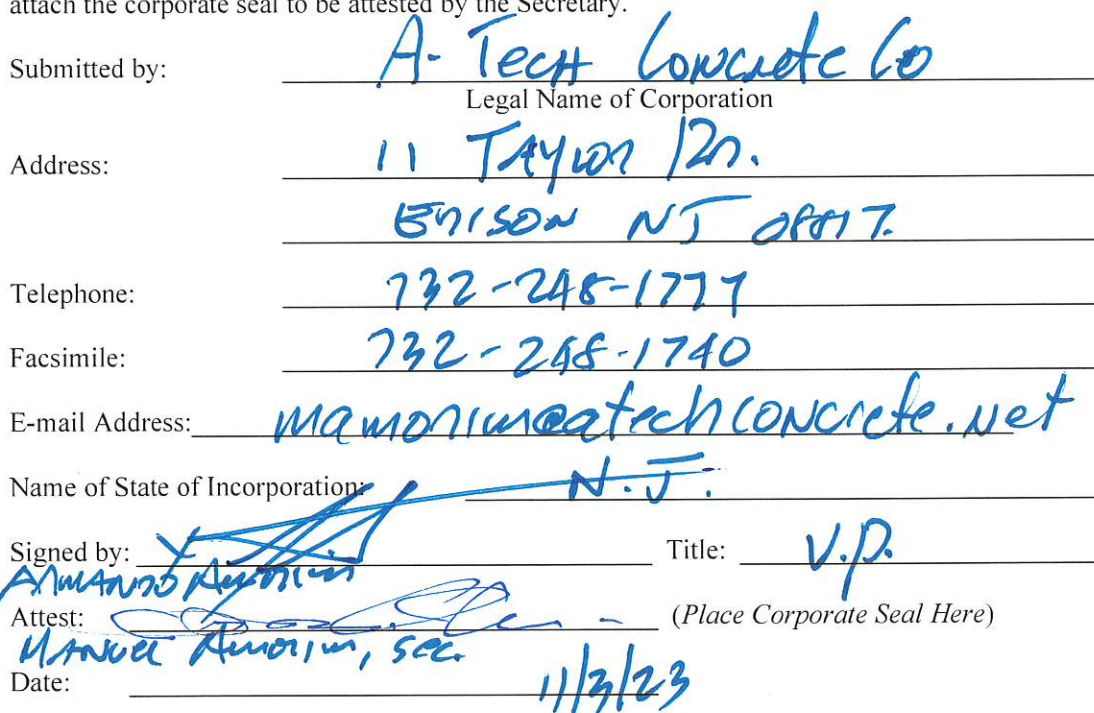 attach the corporate seal to be attested by the Secretary.
Submitted by: A-Tech Concrete Co
Legal Name of Corporation
Address: 11 Taylor Rd.
Edison NJ 08817.
Telephone: 732-248-1777
Facsimile: 732-248-1740
E-mail Address: mamorim@atechconcrete.net
Name of State of Incorporation: N.J.
Signed by: Title: V.P.
Armando Amorim
Attest: (Place Corporate Seal Here)
Manuel Amorim, sec.
Date: 11/3/23